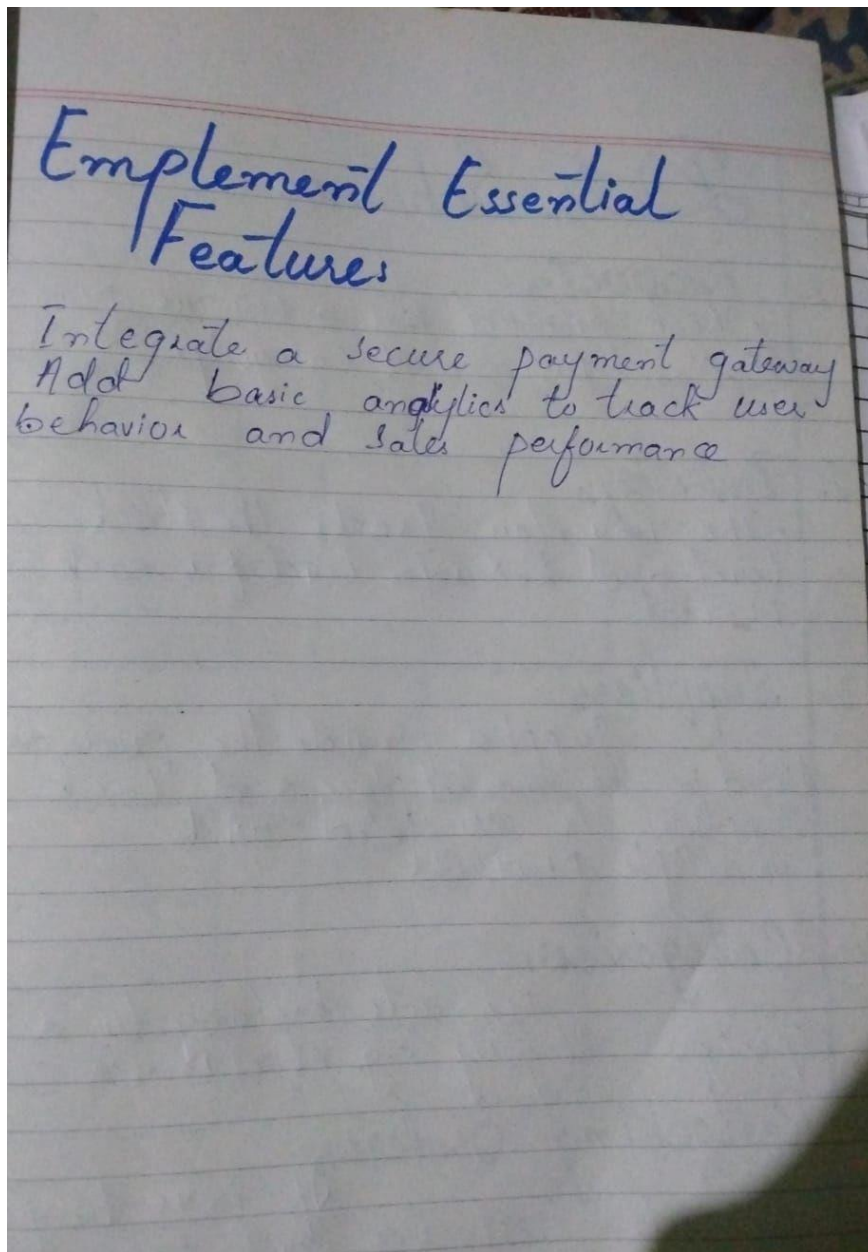 Emplement Essential
Features
Integrate a secure payment gateway
Add basic analytics to track user
behavior and sales performance